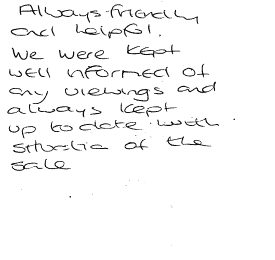 Always friendly
and helpful.
We were kept
well informed of
any viewings and
always kept
up to date with
situatio of the
sale